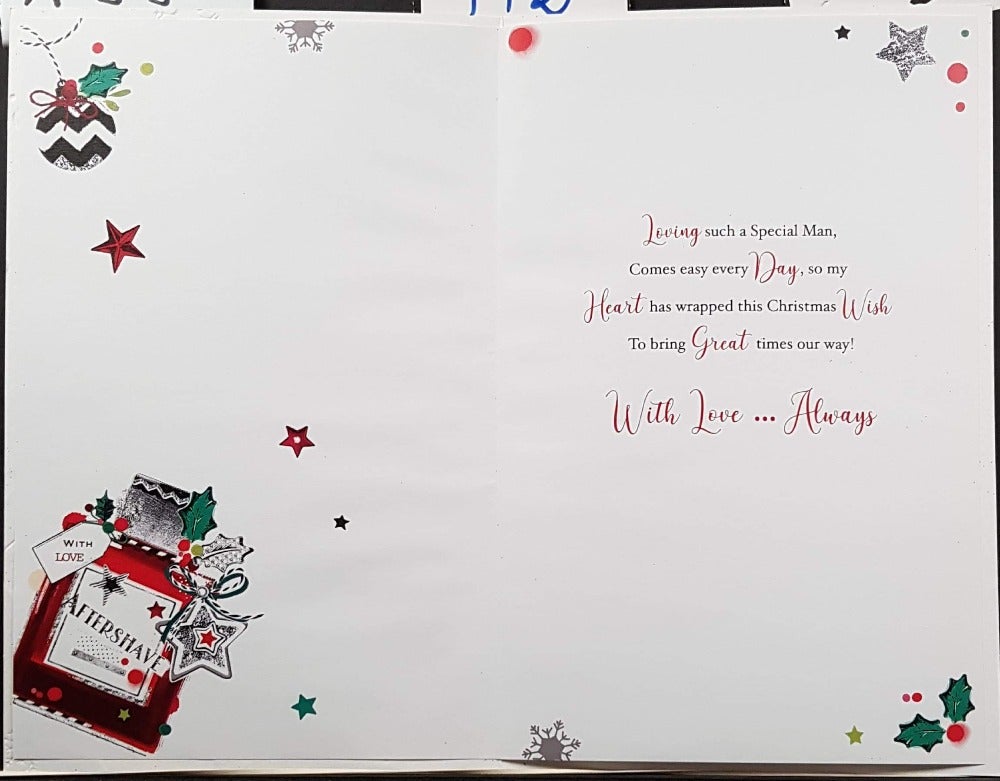 WITH
LOVE
AFTERSHAVE
Loving such a Special Man,
Comes easy every Day, so my
Heart has wrapped this Christmas Wish
To bring Great times our way!
With Love ... Always